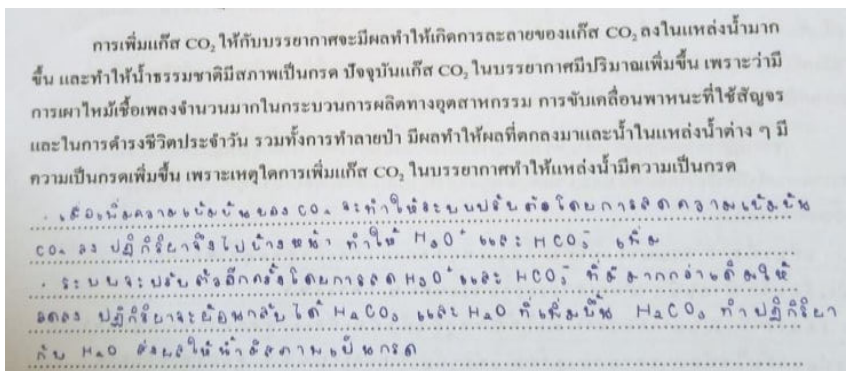 การเพิ่มแก๊ส CO₂ ให้กับบรรยากาศจะมีผลทำให้เกิดการละลายของแก๊ส CO₂ ลงในแหล่งน้ำมาก
ขึ้น และทำให้น้ำธรรมชาติมีสภาพเป็นกรด ปัจจุบันแก๊ส CO₂ ในบรรยากาศมีปริมาณเพิ่มขึ้น เพราะว่ามี
การเผาไหม้เชื้อเพลงจำนวนมากในกระบวนการผลิตทางอุตสาหกรรม การขับเคลื่อนพาหนะที่ใช้สัญจร
และในการดำรงชีวิตประจำวัน รวมทั้งการทำลายป่า มีผลทำให้ผลที่ตกลงมาและน้ำในแหล่งน้ำต่าง ๆ มี
ความเป็นกรดเพิ่มขึ้น เพราะเหตุใดการเพิ่มแก๊ส CO₂ ในบรรยากาศทำให้แหล่งน้ำมีความเป็นกรด
. เมื่อเพิ่มความเข้มข้นของ CO₂ จะทำให้ระบบปรับตัวโดยการลดความเข้มข้น
CO₂ ลง ปฏิกิริยาจึงไปข้างหน้า ทำให้ H₃O⁺ และ HCO₃⁻ เพิ่ม
. ระบบจะปรับตัวอีกครั้งโดยการลด H₃O⁺ และ HCO₃⁻ ที่มีมากกว่าเดิมให้
ลดลง ปฏิกิริยาจะย้อนกลับ ได้ H₂CO₃ และ H₂O ที่เพิ่มขึ้น H₂CO₃ ทำปฏิกิริยา
กับ H₂O ส่งผลให้น้ำมีสภาพเป็นกรด